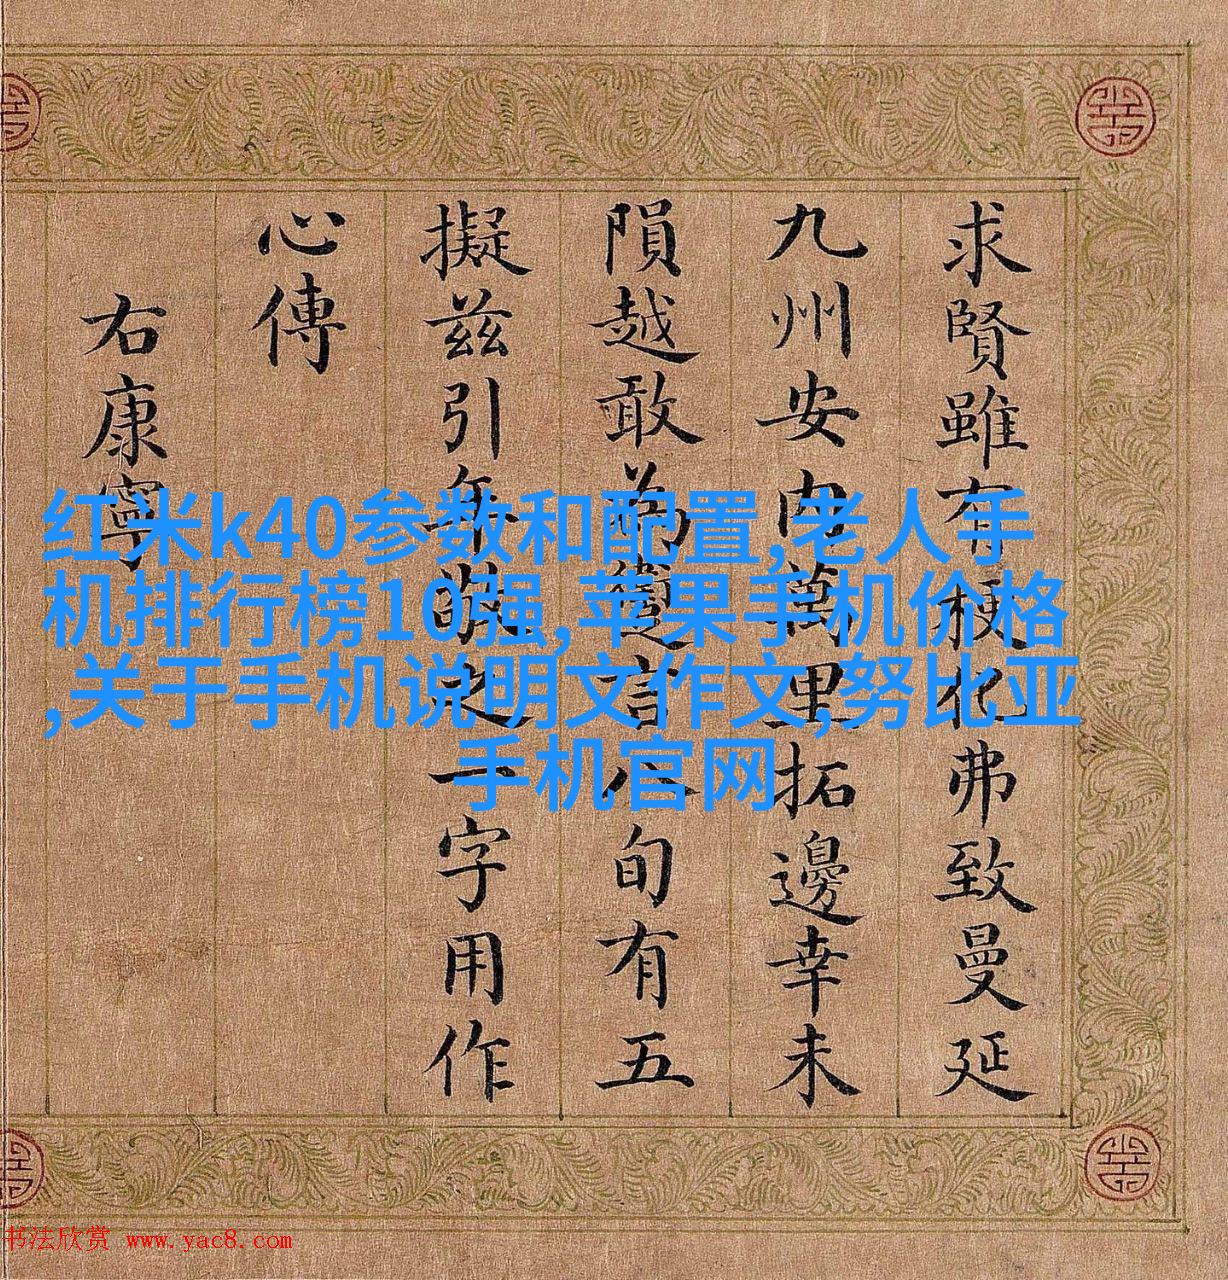 求賢雖有梗化弗致曼延
九州安内萬里拓邊幸未
隕越敢為言八旬有五
擬兹引年敬之一字用作
心傳
右康寧
红米k40参数和配置,老人手
机排行榜10强,苹果手机价格
,关于手机说明文作文,努比亚
手机官网
书法欣赏 www.yac8.com